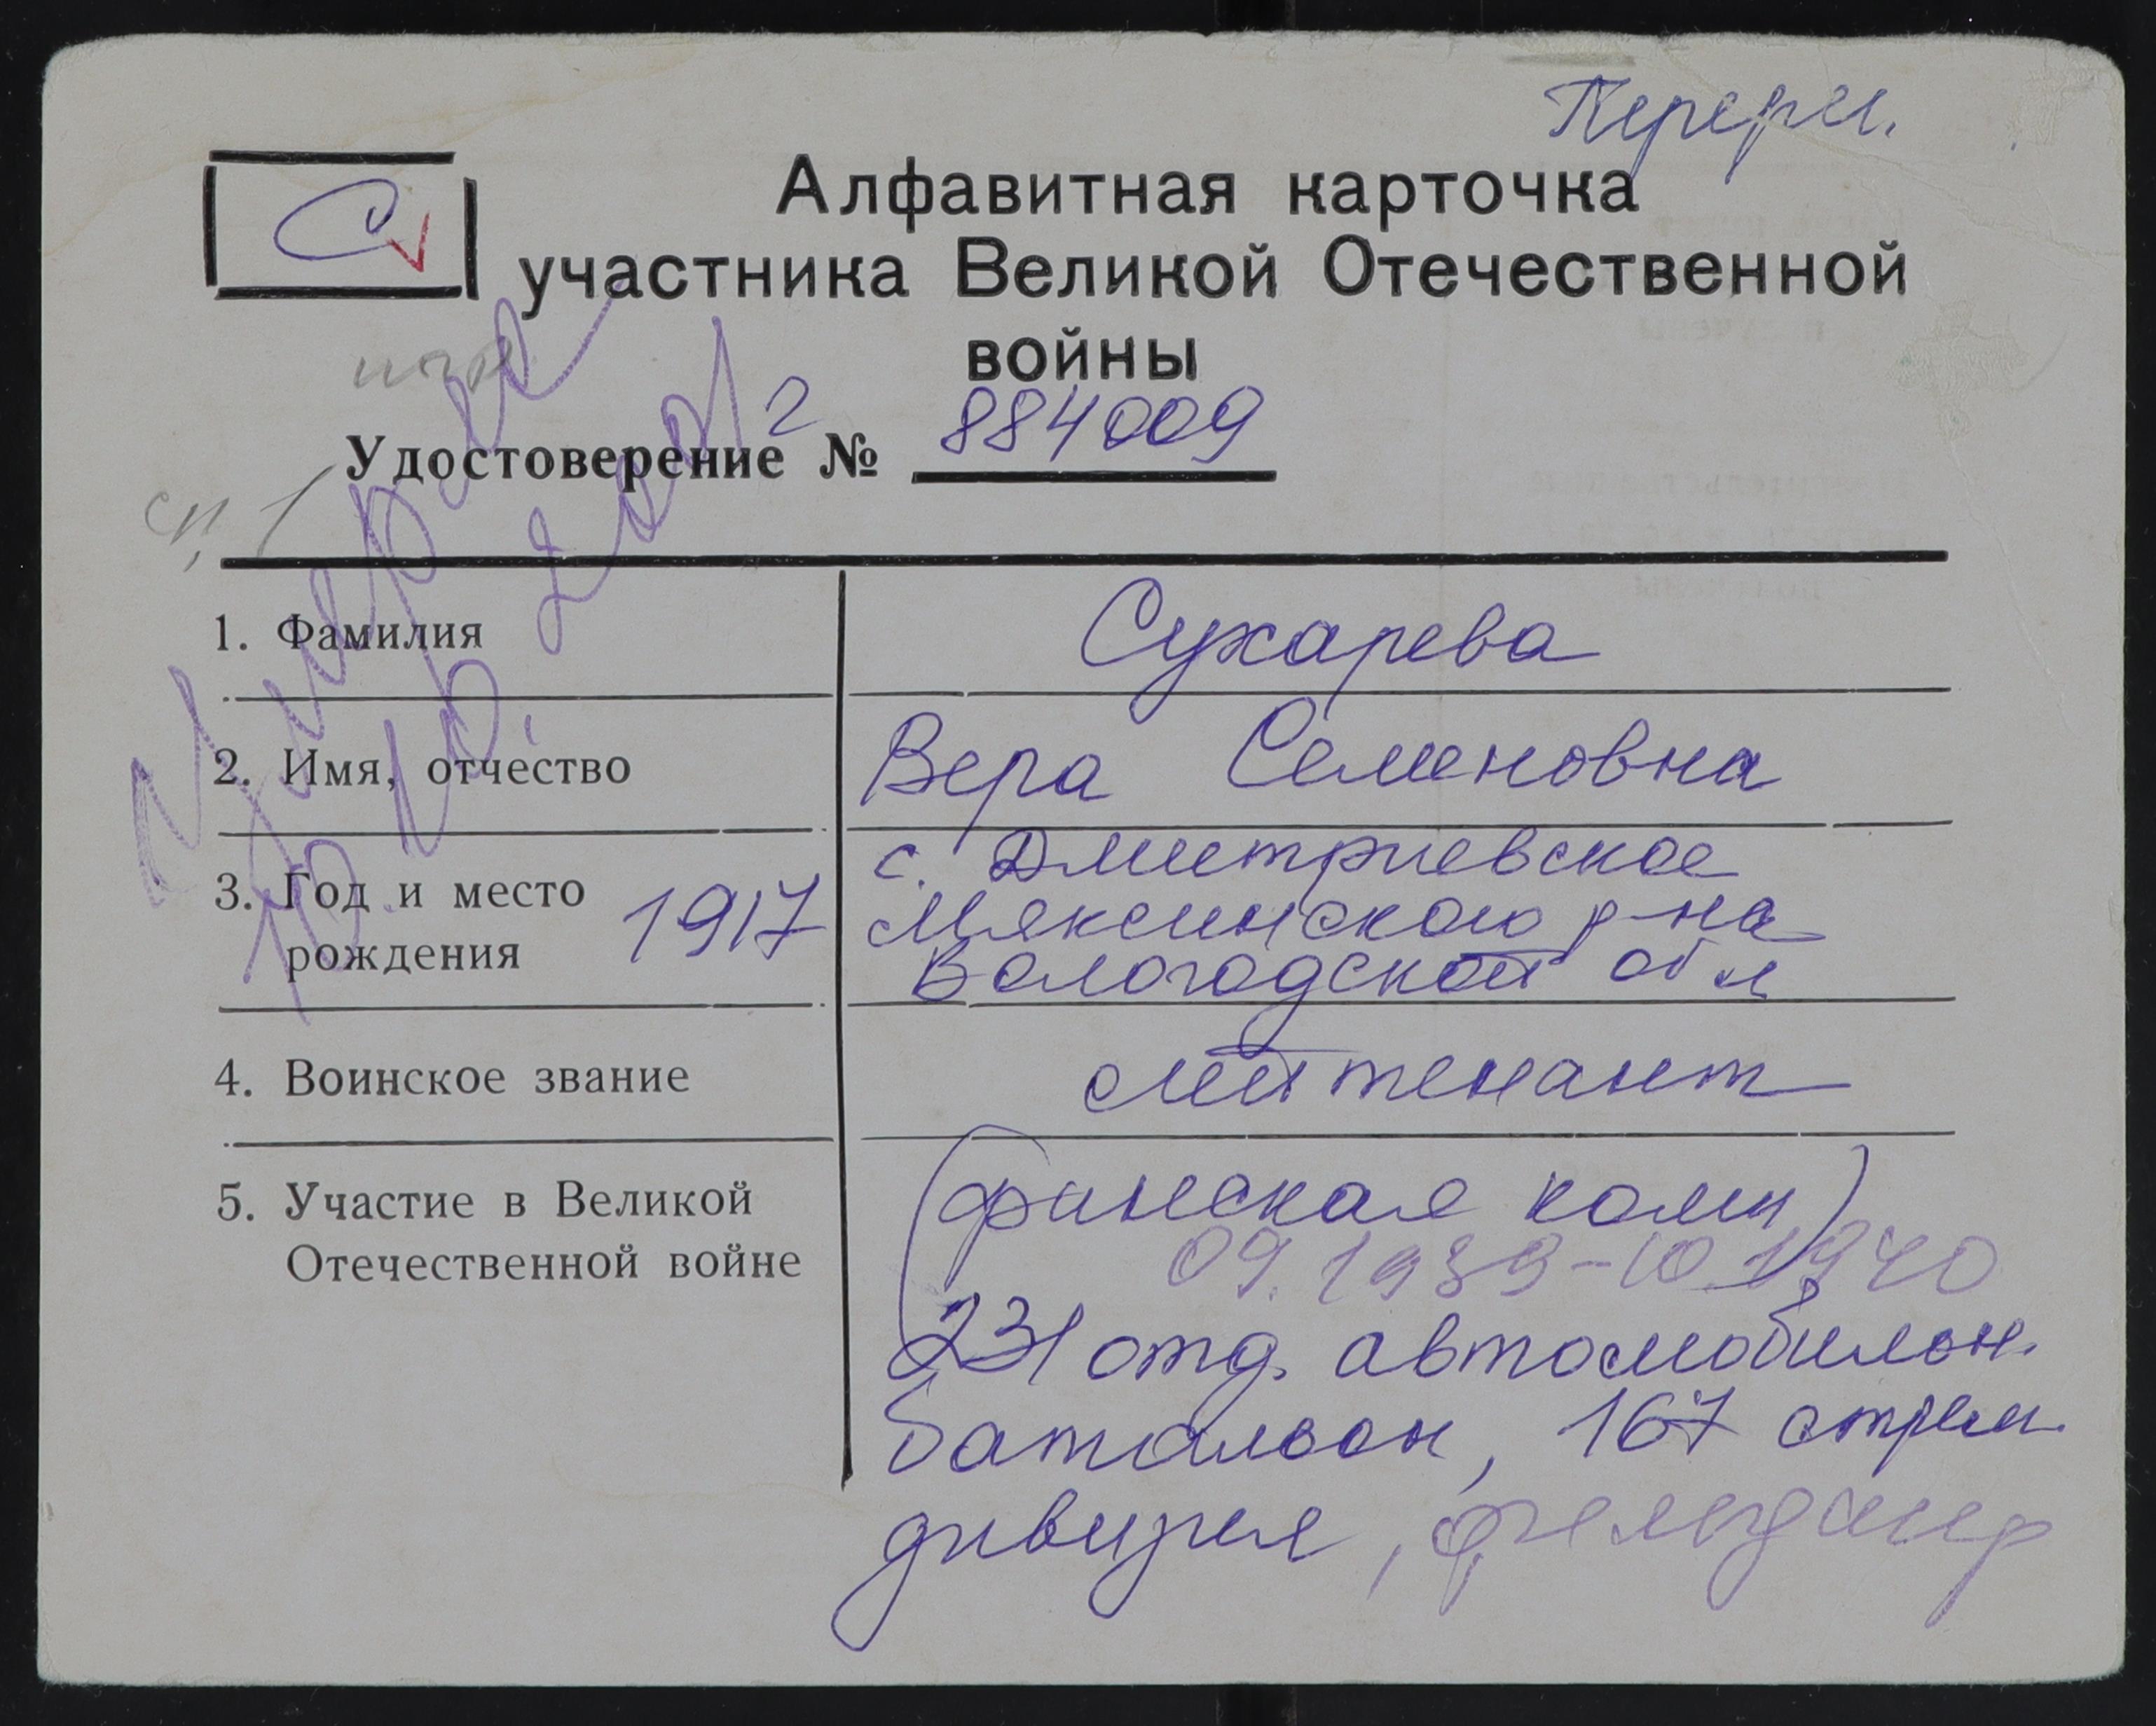 Перерег.
С
Алфавитная карточка
участника Великой Отечественной
войны
Удостоверение № 884009
сп.
1. Фамилия Сухарева
2. Имя, отчество Вера Семеновна
3. Год и место рождения 1917 с. Дмитриевское
Мяксинского р-на
Вологодской обл
4. Воинское звание лейтенант
5. Участие в Великой Отечественной войне (финская комп)
09.1939-10.1940
231 отд. автомобильн.
батальон, 167 стрел
дивизия, фельдшер
Умерла
2001 г